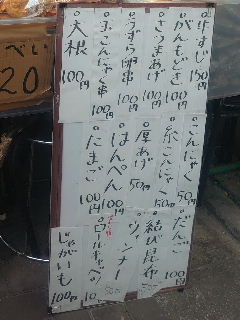 牛すじ 150円
がんもどき 100円
さつまあげ 100円
うずら卵串 100円
玉こんにゃく串 100円
大根 100円
こんにゃく 50円
糸こんにゃく
厚あげ 50円
はんぺん 100円
たまご 100円
だんご 100円
結び昆布 50円
ウィンナー 50円
ロールキャベツ
じゃがいも 100円
べい
20